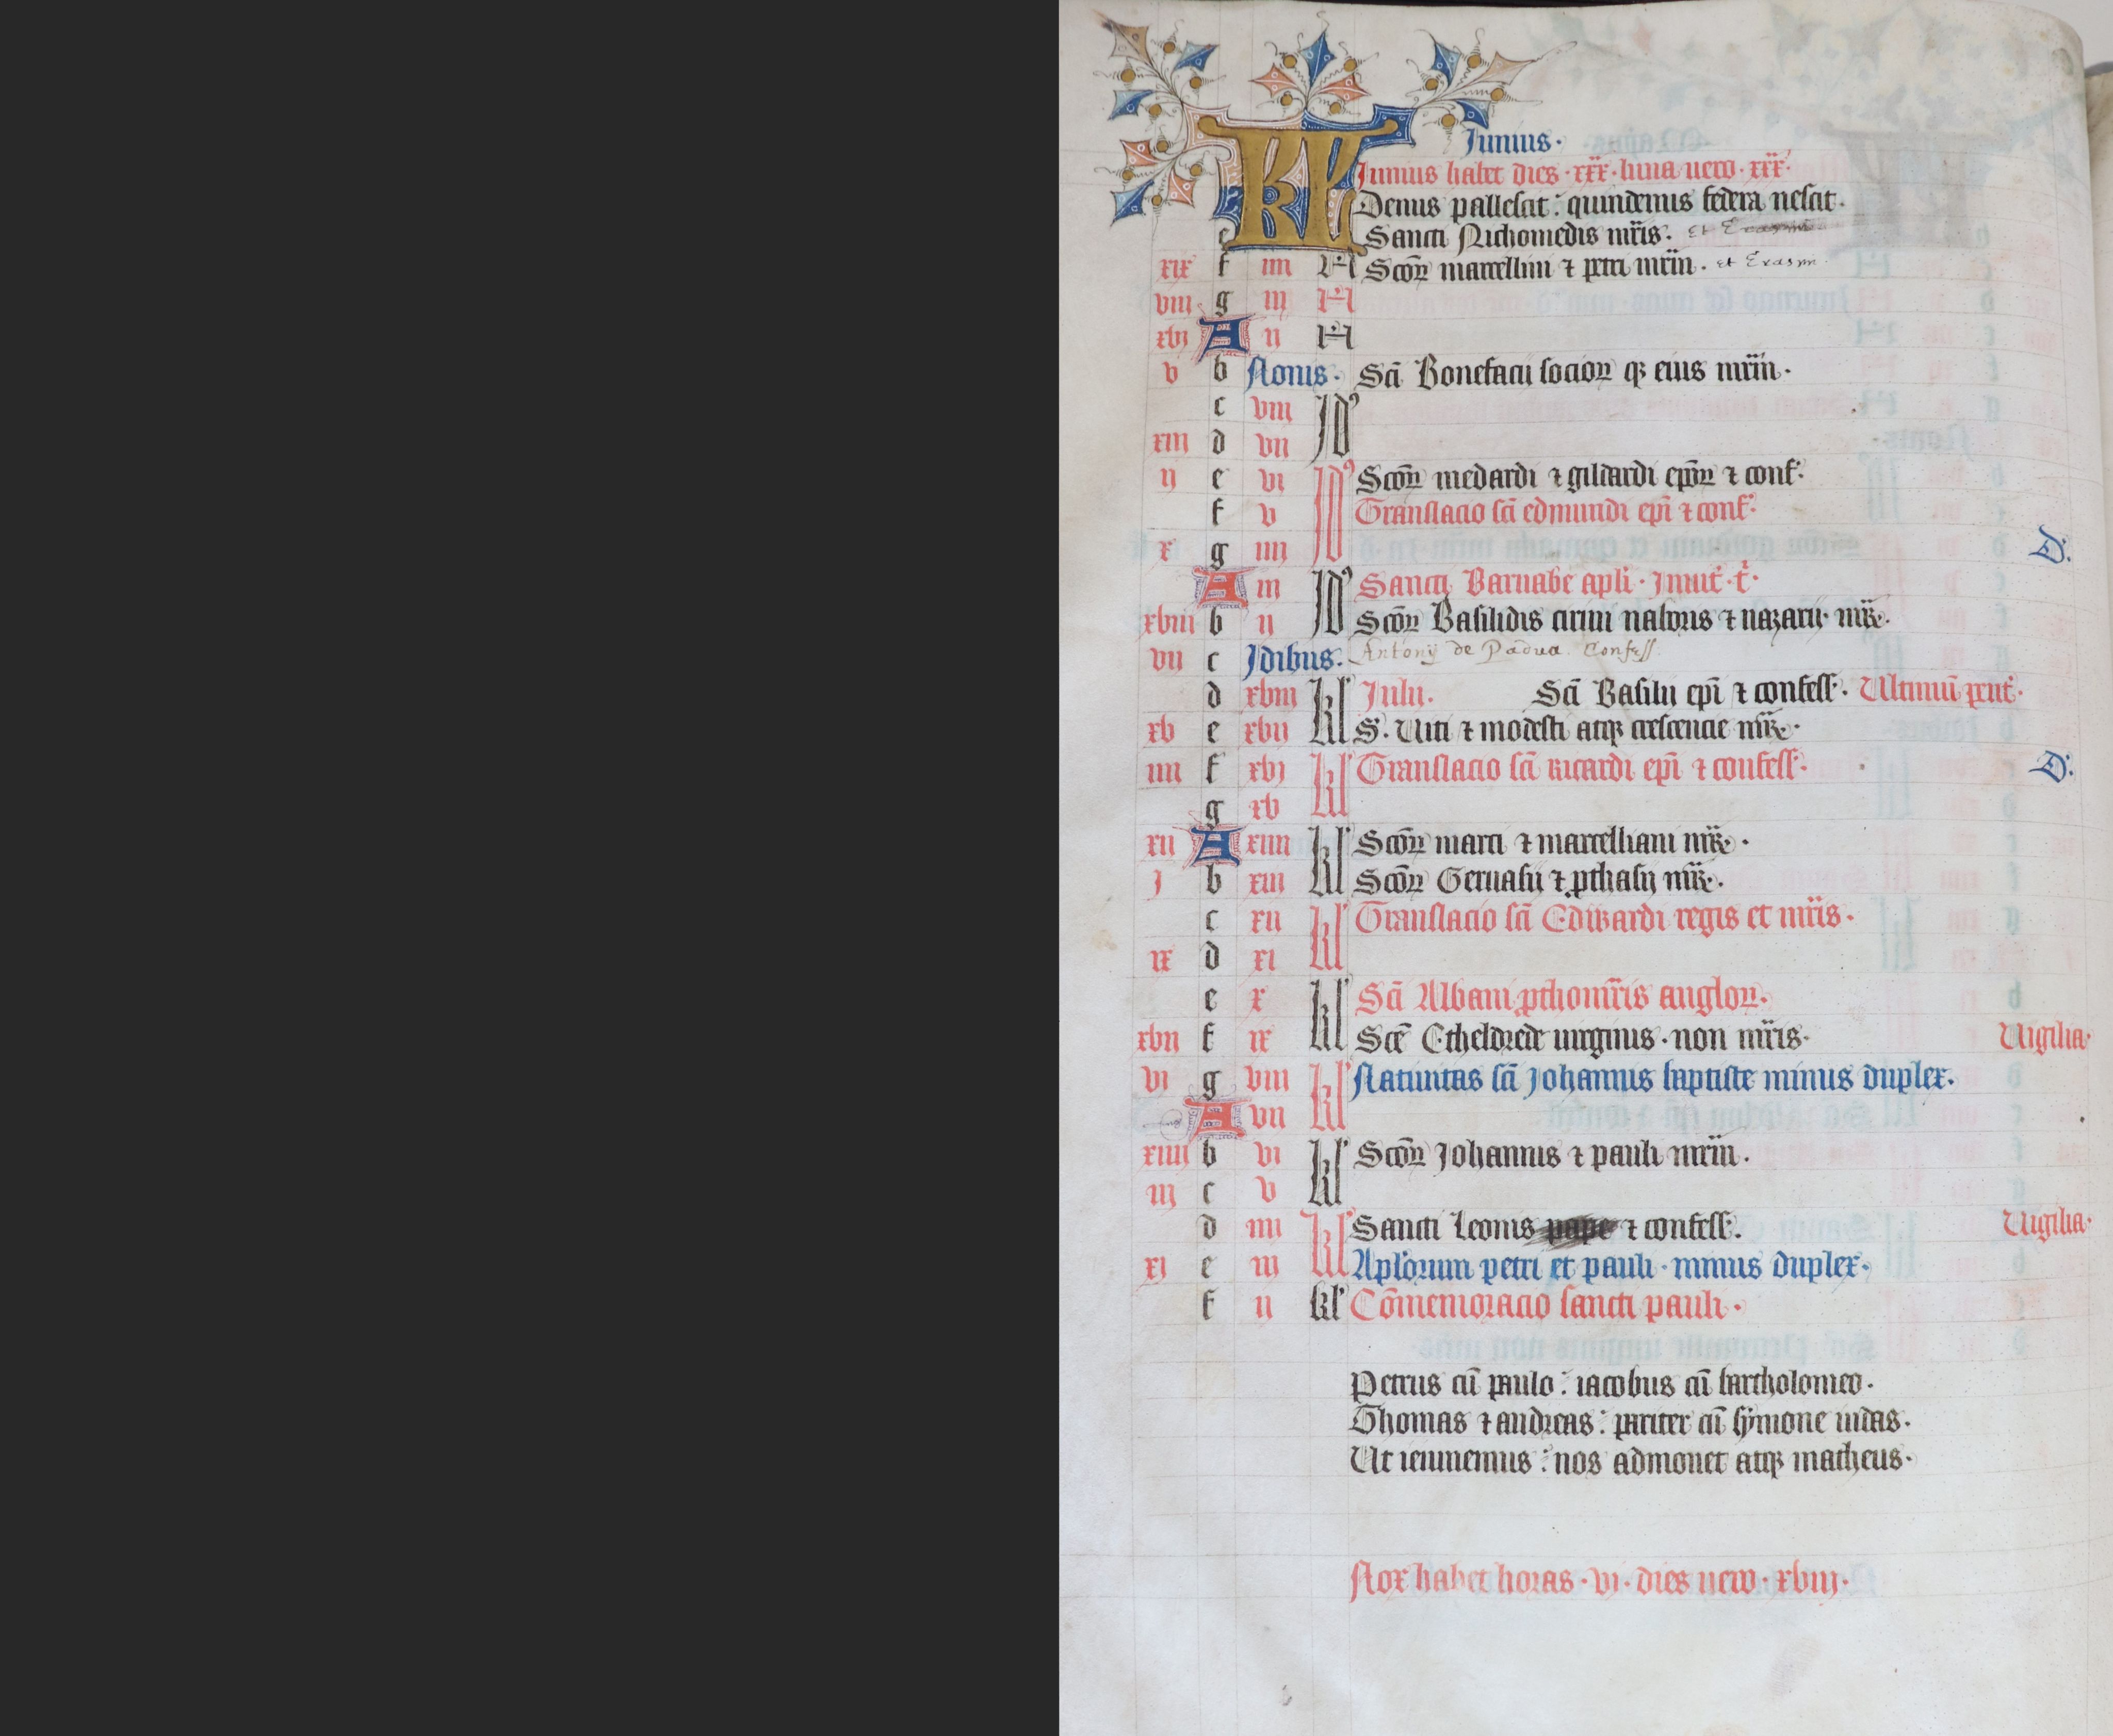 KL Junius.
Junius habet dies · xxx · luna uero · xxx ·
Denus pallescit : quindenus federa nescit.
e Sancti Nichomedis mr̃is. et
xix f iiii N Scõꝝ marcellini ⁊ petri mr̃m. et Erasmi
viii g iii N
xvi A ii N
v b Nonis. Sc̃i Bonefacii socioꝝ qꝫ eius mr̃m.
c viii Id'
xiii d vii
ii e vi Id' Scõꝝ medardi ⁊ gildardi ep̃oꝝ ⁊ conf.
f v Translacio sc̃i edmundi ep̃i ⁊ conf.
x g iiii D.
A iii Id' Sancti Barnabe apl̃i. Inuit. t̃.
xviii b ii Scõꝝ Basilidis cirini naboris ⁊ nazarii. mr̃
vii c Idibus. Antonij de Padua. Confess.
d xviii kl' Julii. Sc̃i Basilii ep̃i ⁊ confess. Ultimũ pent.
xv e xvii S. Uiti ⁊ modesti atqꝫ crescencie mr̃
iiii f xvi kl' Translacio sc̃i ricardi ep̃i ⁊ confess. D.
g xv
xii A xiiii kl' Scõꝝ marci ⁊ marcelliani mr̃.
i b xiii Scõꝝ Geruasii ⁊ ꝓthasii mr̃.
c xii kl' Translacio sc̃i Edwardi regis et mr̃is.
ix d xi
e x kl' Sc̃i Albani ꝓthomr̃is angloꝝ.
xvii f ix Sc̃e Etheldrede uirginis. non mr̃is. Uigilia.
vi g viii kl' Natiuitas sc̃i Johannis baptiste minus duplex.
A vii
xiiii b vi kl' Scõꝝ Johannis ⁊ pauli mr̃m.
iii c v
d iiii kl' Sancti Leonis pape ⁊ confess. Uigilia.
xi e iii Apl̃orum petri et pauli. minus duplex.
f ii kl' Cõmemoracio sancti pauli.
Petrus cũ paulo : iacobus cũ bartholomeo.
Thomas ⁊ andreas : pariter cũ symone iudas.
Ut ieiunemus : nos admonet atqꝫ matheus.
Nox habet horas · vi · dies uero · xviii ·